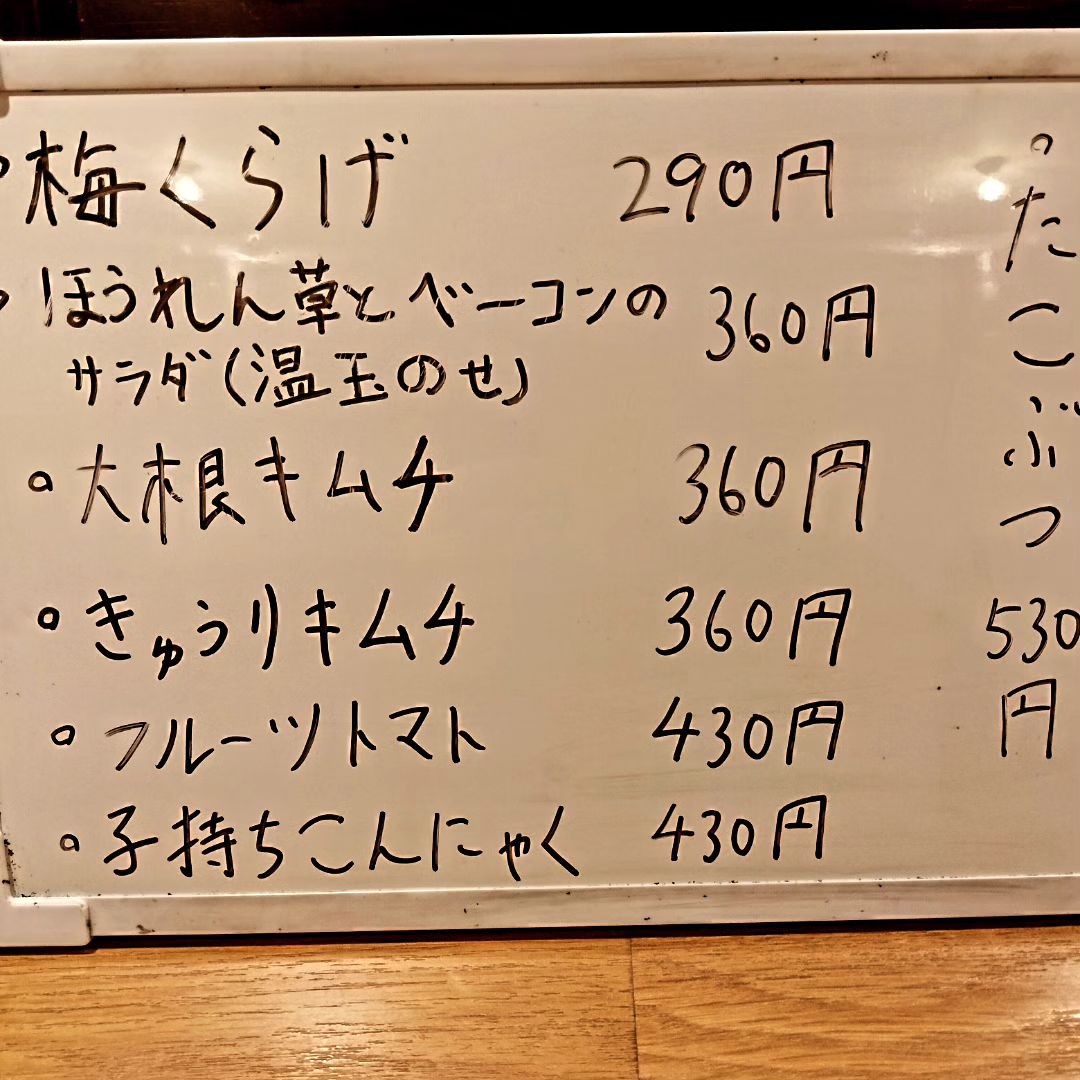 ・梅くらげ 290円
・ほうれん草とベーコンの 360円
サラダ(温玉のせ)
・大根キムチ 360円
・きゅうりキムチ 360円
・フルーツトマト 430円
・子持ちこんにゃく 430円
・たこぶつ
530
円